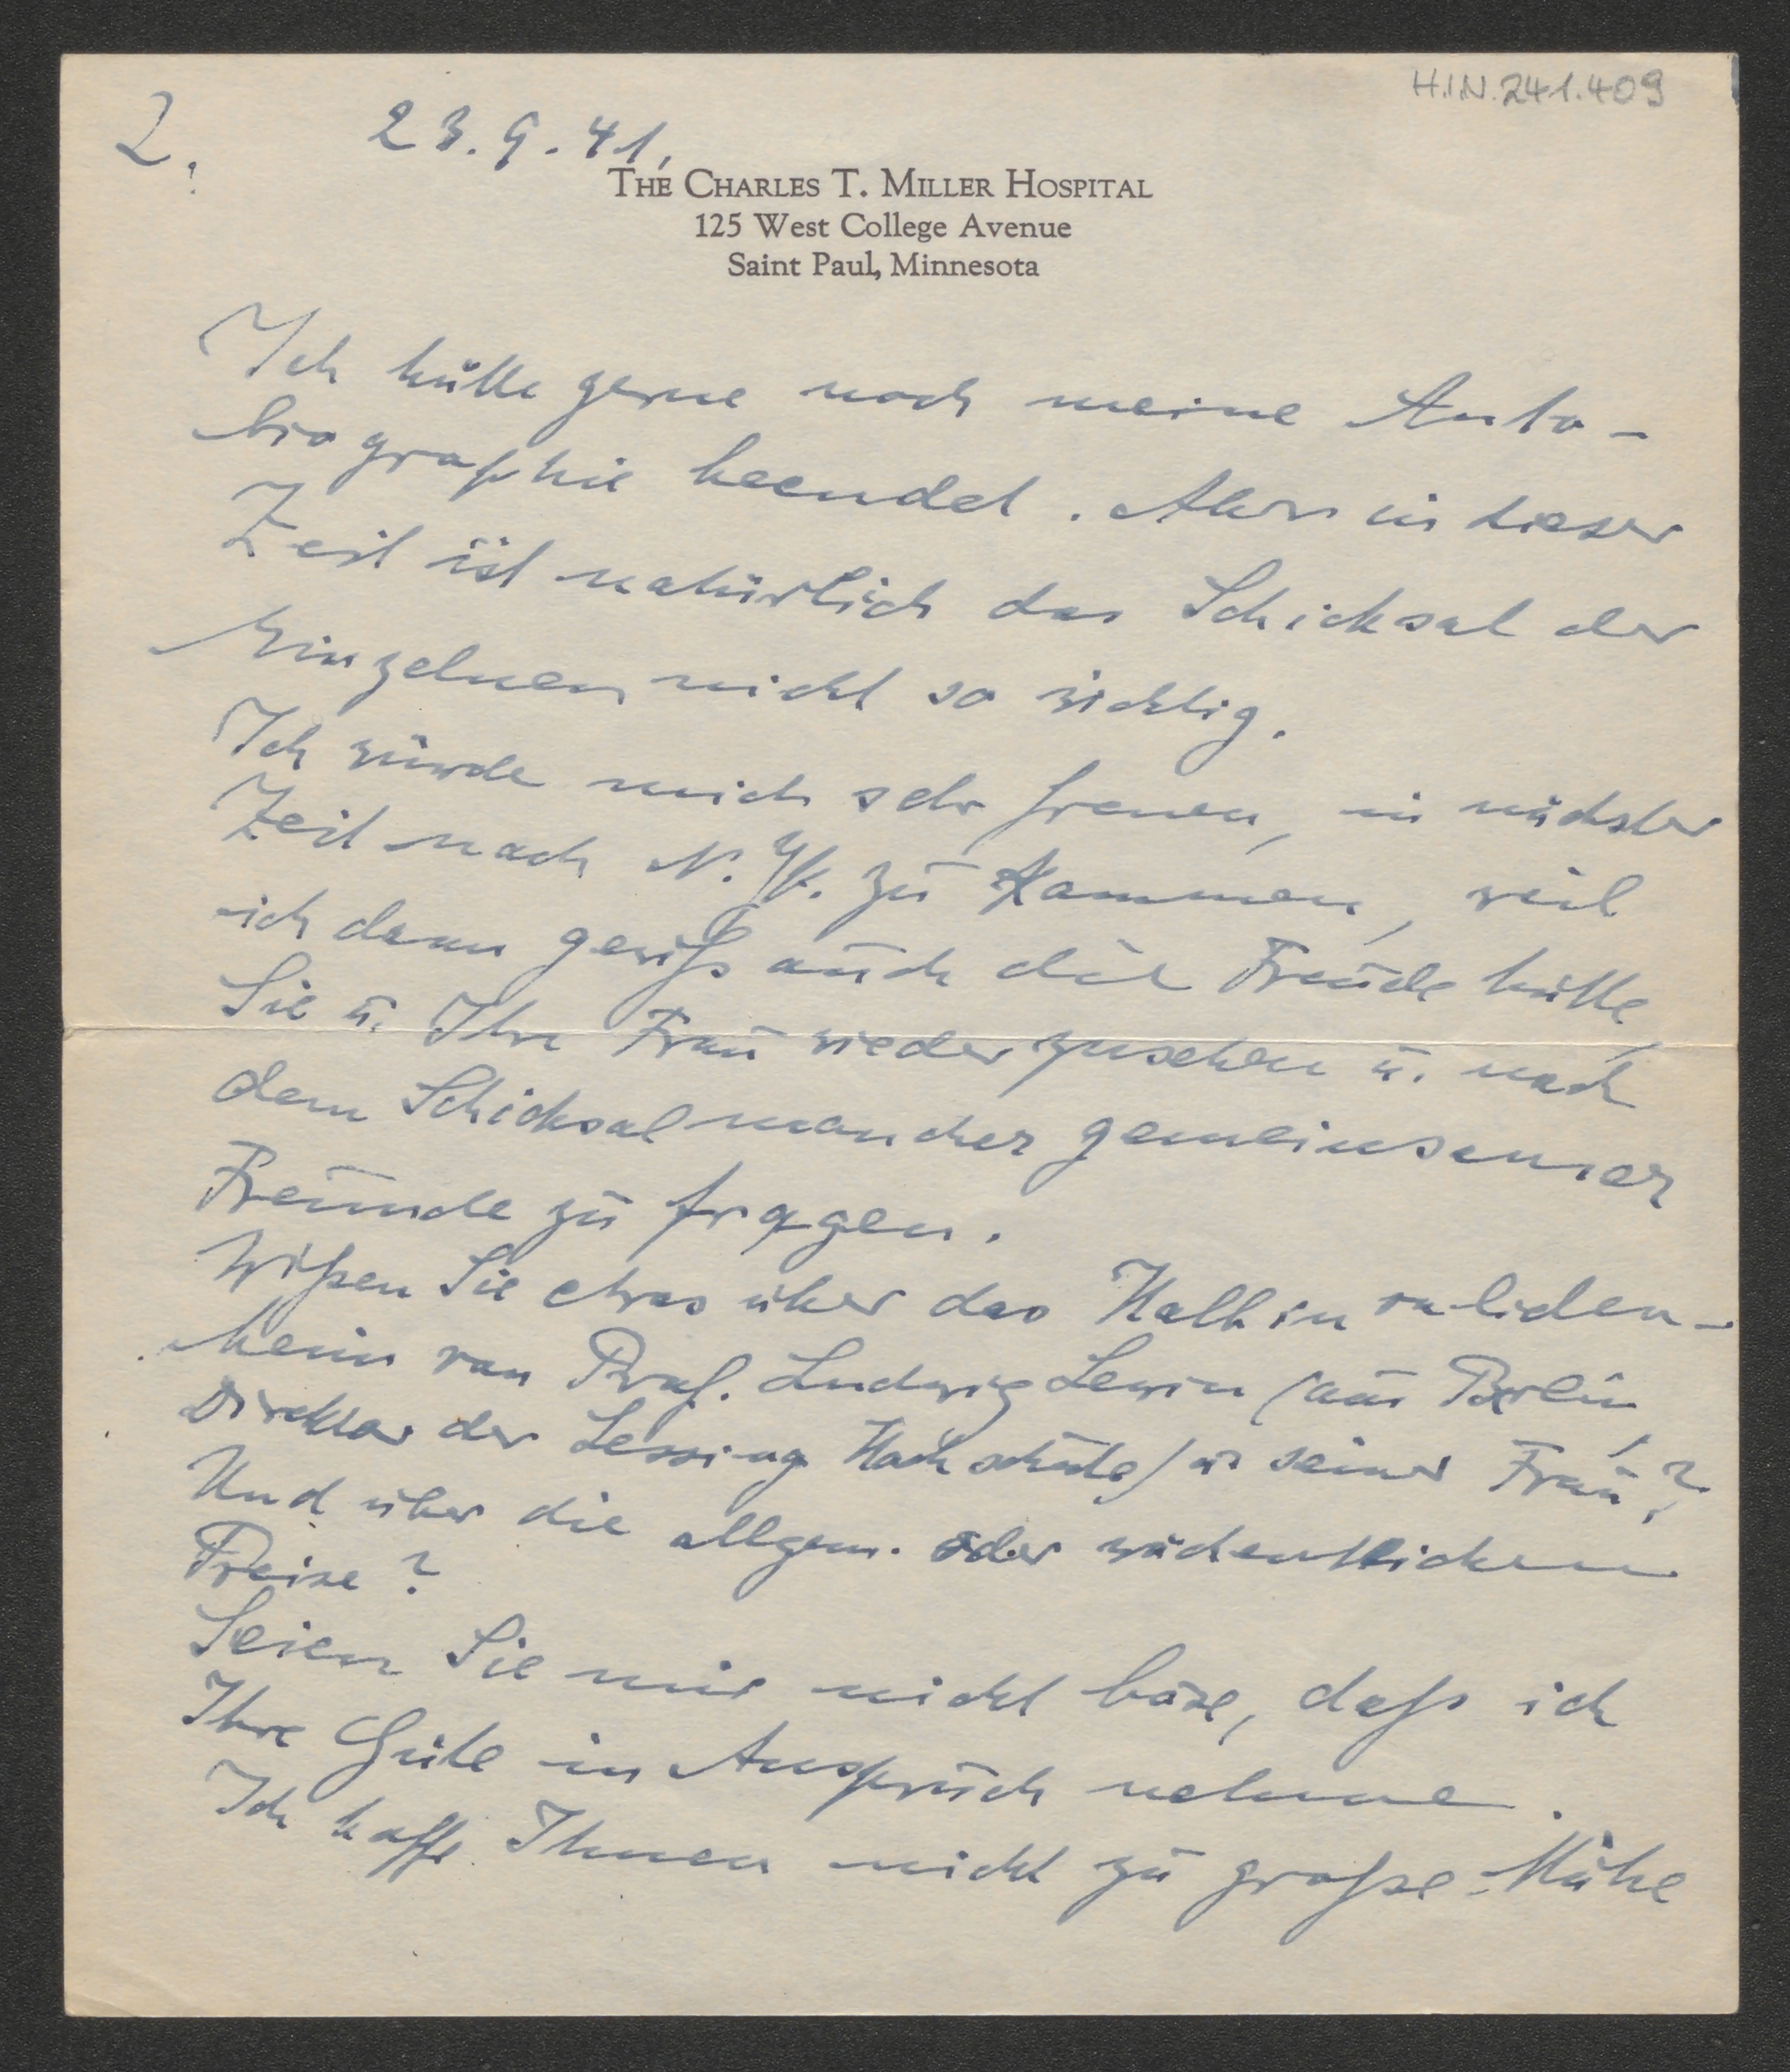 H.I.N. 241.409
2. 23.9.41.
THE CHARLES T. MILLER HOSPITAL
125 West College Avenue
Saint Paul, Minnesota
Ich hätte gerne noch meine Auto-
biographie beendet. Aber in dieser
Zeit ist natürlich das Schicksal der
Einzelnen nicht so wichtig.
Ich würde mich sehr freuen, in nächster
Zeit nach N.Y. zu kommen, weil
ich dann gewiß auch die Freude hätte,
Sie u. Ihre Frau wiederzusehen u. nach
dem Schicksal mancher gemeinsamer
Freunde zu fragen.
Wißen Sie etwas über das Halbinvaliden-
heim von Prof. Ludwig Lewin (aus Berlin,
Direktor der Lessing Hochschule) u. seiner Frau?
Und über die allgem. oder wöchentlichen
Preise?
Seien Sie mir nicht böse, daß ich
Ihre Güte in Anspruch nehme.
Ich hoffe Ihnen nicht zu große Mühe